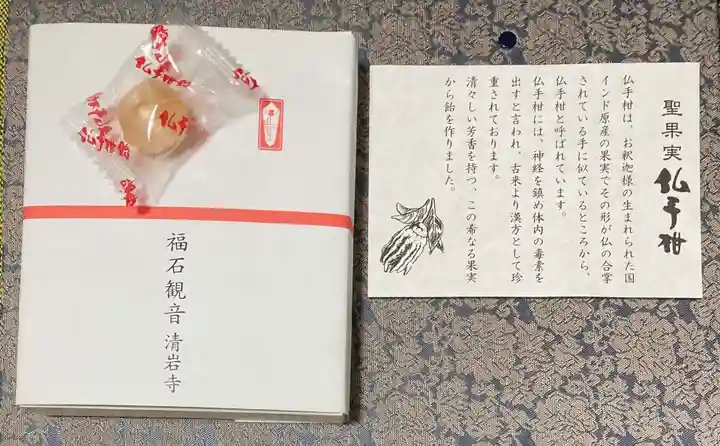 仏手柑
福石観音 清岩寺
聖果実
仏手柑
仏手柑は、お釈迦様の生まれられた国
インド原産の果実でその形が仏の合掌
されている手に似ているところから、
仏手柑と呼ばれています。
仏手柑には、神経を鎮め体内の毒素を
出すと言われ、古来より漢方として珍
重されております。
清々しい芳香を持つ、この希なる果実
から飴を作りました。